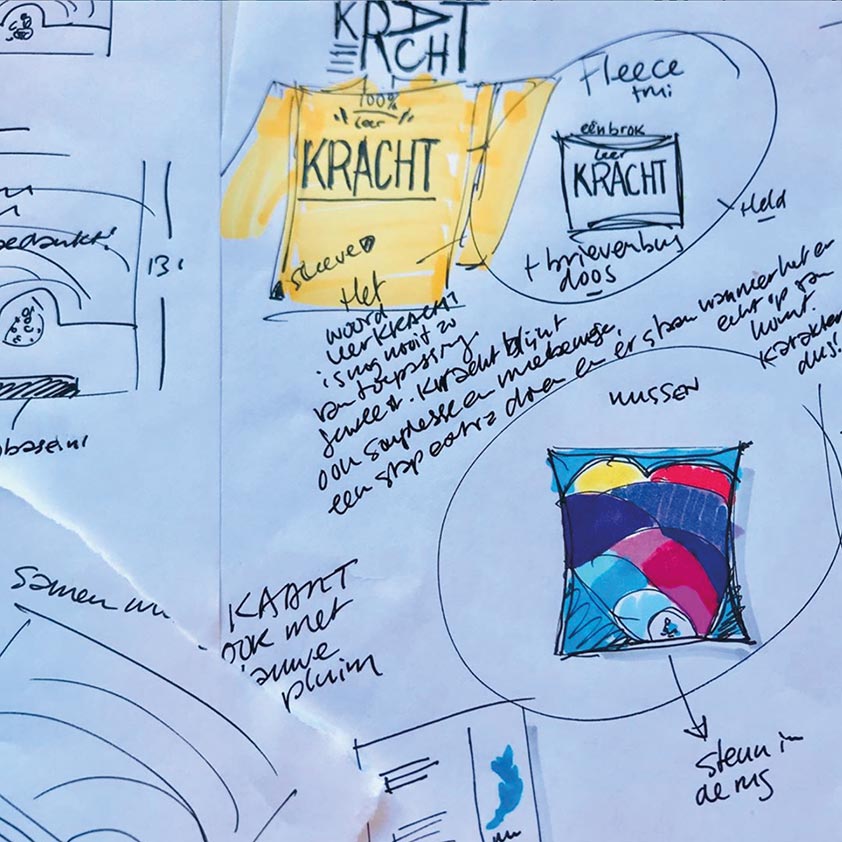 KRACHT
100%
leer
KRACHT
sleeve
Fleece
één brok
leer
KRACHT
+ Held
+ brievenbus
doos
Het
woord
leerKRACHT
is nog nooit zo
van toepassing
geweest. Kracht blijnt
oon souplesse en meebewegen,
een stap extra doen en er staan wanneer het er
echt op aan
komt.
Karakter
dus!
KUSSEN
Steun in
de rug
Samen
KAART
OOK met
pluim